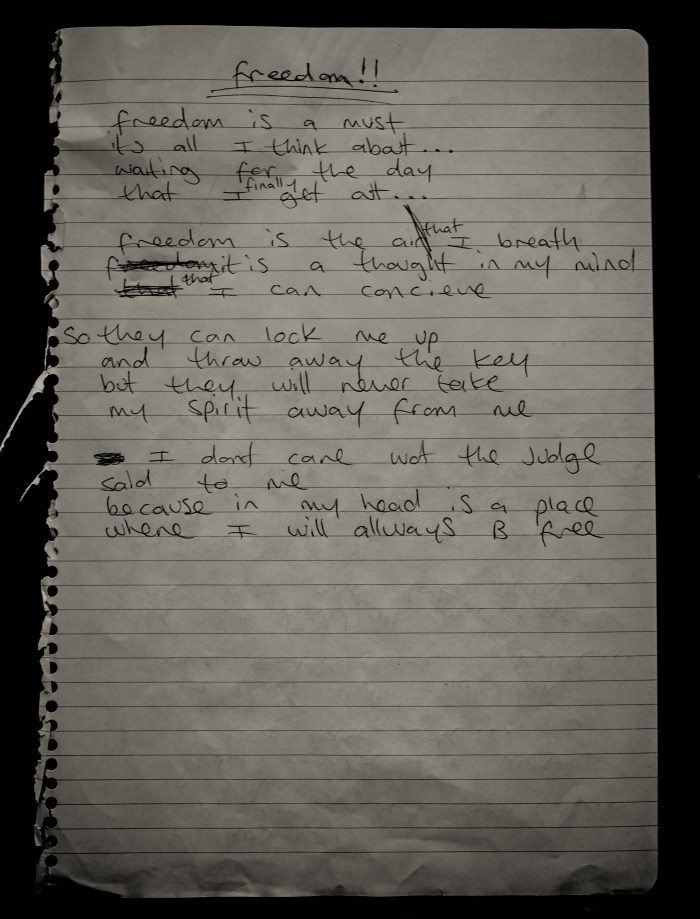 freedom!!
freedom is a must
its all I think about...
waiting for the day
that I finally get out...
freedom is the air that I breath
it is a thought in my mind
that I can concieve
So they can lock me up
and throw away the key
but they will never take
my spirit away from me
I dont care wot the Judge
said to me
because in my head is a place
where I will allways B free